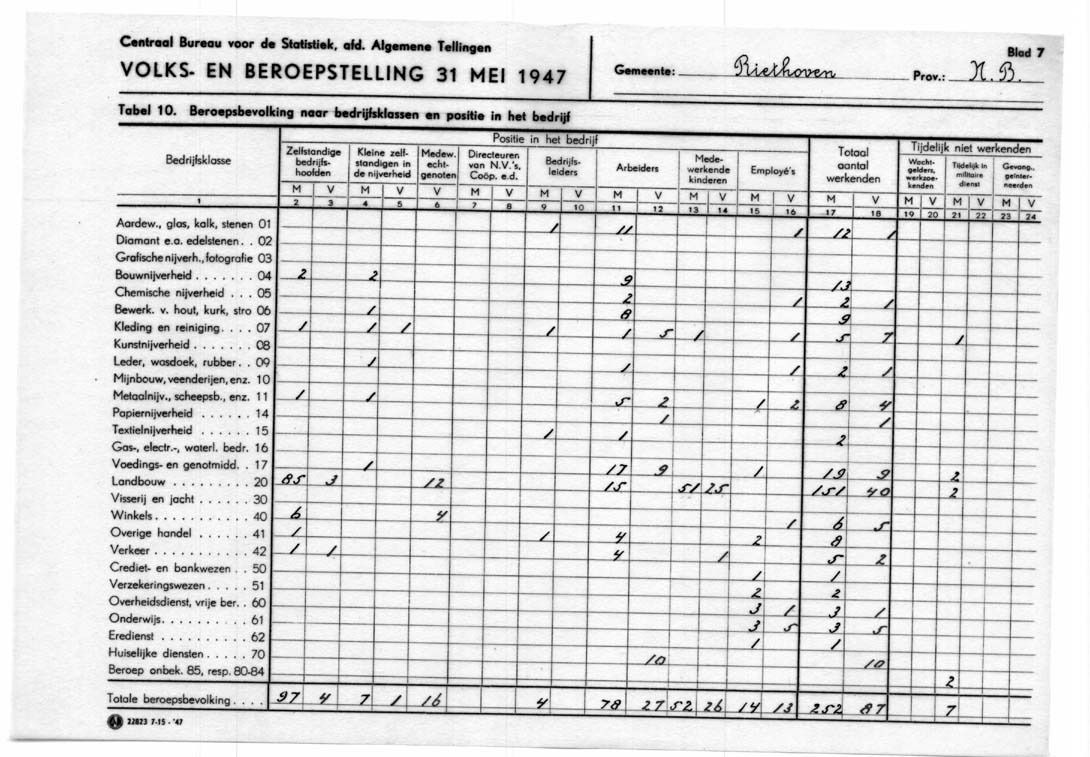 Centraal Bureau voor de Statistiek, afd. Algemene Tellingen
VOLKS- EN BEROEPSTELLING 31 MEI 1947
Gemeente: Riethoven Prov.: N.B.
Blad 7
Tabel 10. Beroepsbevolking naar bedrijfsklassen en positie in het bedrijf
Bedrijfsklasse
Positie in het bedrijf
Zelfstandige bedrijfs-hoofden
Kleine zelf-standigen in de nijverheid
Medew. echt-genoten
Directeuren van N.V.'s, Coöp. e.d.
Bedrijfs-leiders
Arbeiders
Mede-werkende kinderen
Employé's
Totaal aantal werkenden
Tijdelijk niet werkenden
Wacht-gelders, werkzoe-kenden
Tijdelijk in militaire dienst
Gevang., geïnter-neerden
M V M V V M V M V M V M V M V M V M V M V M V
1 2 3 4 5 6 7 8 9 10 11 12 13 14 15 16 17 18 19 20 21 22 23 24
Aardew., glas, kalk, stenen 01 1 11 1 12 1
Diamant e.a. edelstenen . . 02
Grafische nijverh., fotografie 03
Bouwnijverheid . . . . . . . 04 2 2 9 13
Chemische nijverheid . . . 05 2 1 2 1
Bewerk. v. hout, kurk, stro 06 1 8 9
Kleding en reiniging. . . . 07 1 1 1 1 1 5 1 1 5 7 1
Kunstnijverheid . . . . . . . 08
Leder, wasdoek, rubber . . 09 1 1 1 2 1
Mijnbouw, veenderijen, enz. 10
Metaalnijv., scheepsb., enz. 11 1 1 5 2 1 2 8 4
Papiernijverheid . . . . . . 14 1 1
Textielnijverheid . . . . . . 15 1 1 2
Gas-, electr.-, waterl. bedr. 16
Voedings- en genotmidd. . 17 1 17 9 1 19 9 2
Landbouw . . . . . . . . . 20 85 3 12 15 51 25 151 40 2
Visserij en jacht . . . . . . 30
Winkels . . . . . . . . . . 40 6 4 1 6 5
Overige handel . . . . . . 41 1 1 4 2 8
Verkeer . . . . . . . . . . 42 1 1 4 1 5 2
Crediet- en bankwezen . . 50 1 1
Verzekeringswezen . . . . . 51 2 2
Overheidsdienst, vrije ber. . 60 3 1 3 1
Onderwijs. . . . . . . . . . 61 3 5 3 5
Eredienst . . . . . . . . . 62 1 1
Huiselijke diensten . . . . . 70 10 10
Beroep onbek. 85, resp. 80-84 2
Totale beroepsbevolking . . . . 97 4 7 1 16 4 78 27 52 26 14 13 252 87 7
22823 7-15 - '47